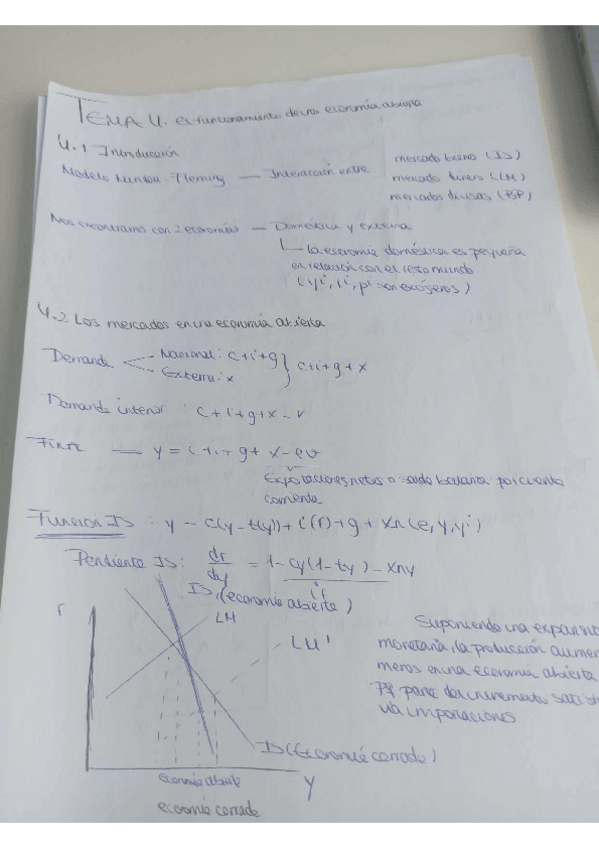 TEMA 4. El funcionamiento de una economía abierta
4.1 Introducción
Modelo Mundell-Fleming — Interacción entre mercado bienes (IS)
mercado dinero (LM)
mercados divisas (BP)
Nos encontramos con 2 economías — Doméstica y externa
La economía doméstica es pequeña
en relación con el resto mundo
(yⁱ, rⁱ, pⁱ son exógenos)
4.2 Los mercados en una economía abierta
Demanda - Nacional: c+i+g } c+i+g+x
- Externa: x
Demanda interior: c+i+g+x-v
y = c+i+g+x-ev
Exportaciones netas o saldo balanza por cuenta
corriente
Función IS: y = c(y-t(y))+i(r)+g+xn(e,y,yⁱ)
Pendiente IS: dr/dy = 1-cy(1-ty)-xny / ir
IS (economía abierta)
r
LM
LM'
Suponiendo una expansión
monetaria, la producción aumen
menos en una economía abierta
pq parte del incremento
vía importaciones
IS (Economía cerrada)
Economía abierta
y
economía cerrada